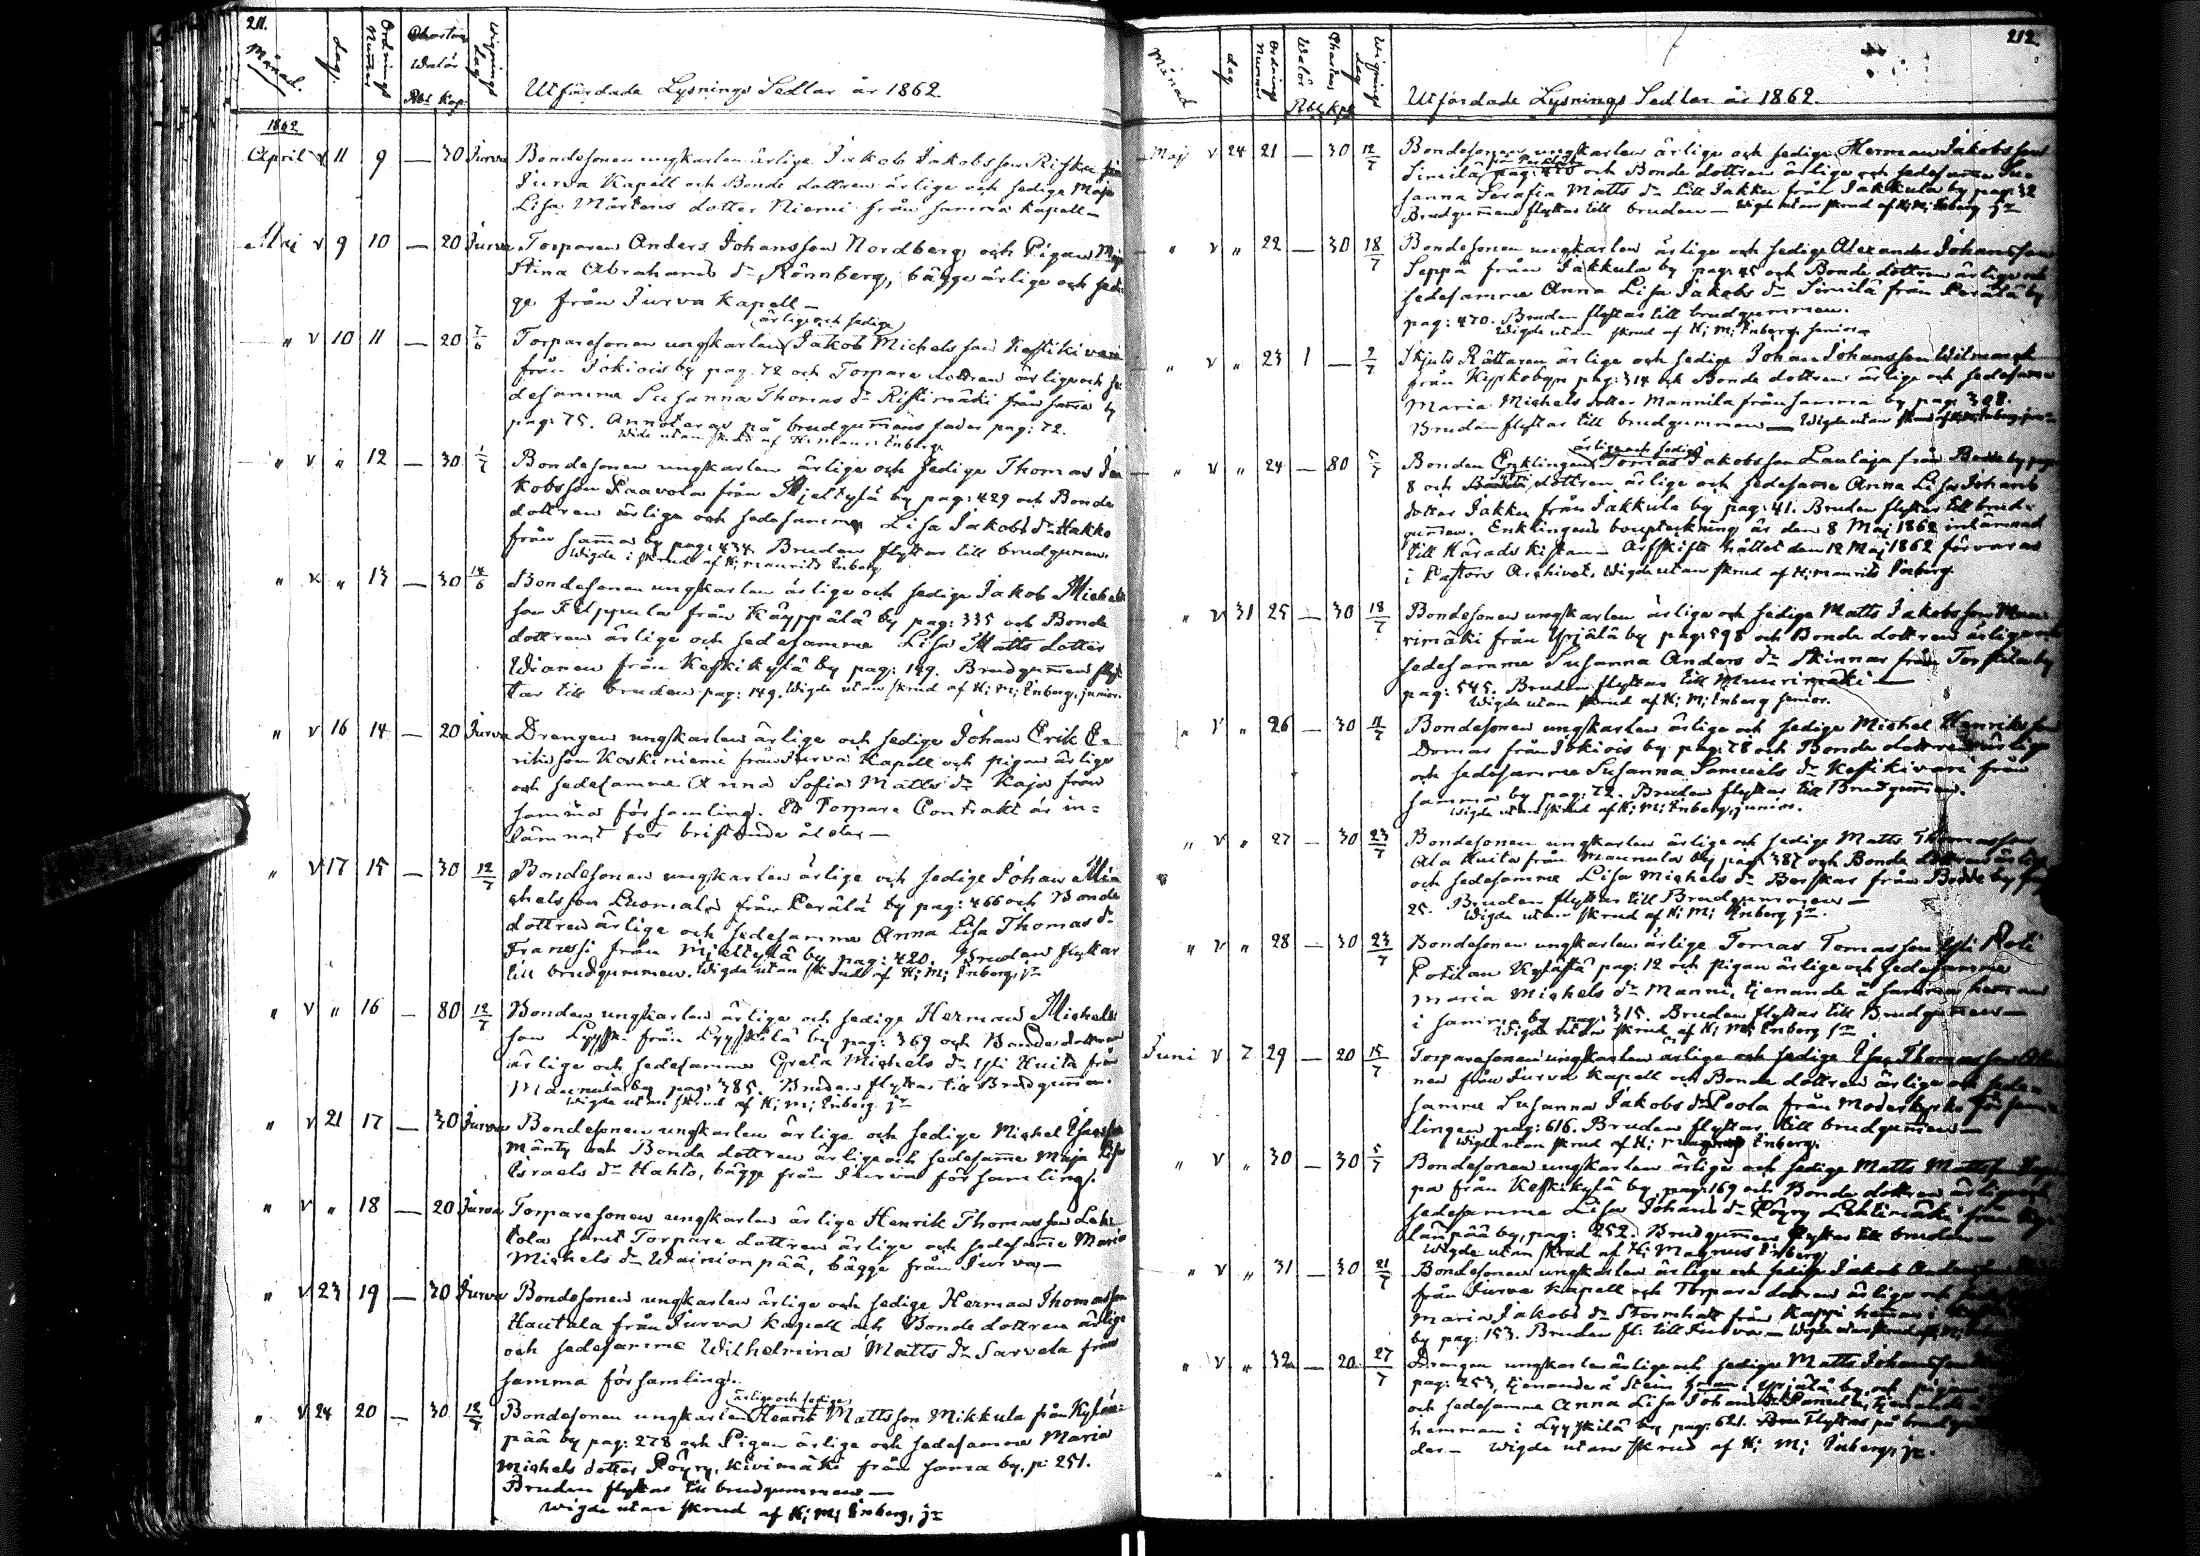 211.
Månad.
dag.
Ordnings Nummer
Charta Walör
Rbl Kop
Wignings dag
Utfärdade Lysnings Sedlar år 1862
1862
April v 11 9 — 30 Jurva Bondesonen ungkarlen ärlige Jakob Jakobsson Risku från
Jurva Kapell och Bonde dottren ärlige och sedige Maja
Lisa Mårtens dotter Niemi från samma Kapell —
Maj v 9 10 — 20 Jurva Torparen Anders Johansson Nordberg och Pigan Maja
Stina Abrahams dr Rönnberg, bägge ärlige och sedi-
ge från Jurva Kapell —
ärlige och sedige
" v 10 11 — 20 7/6 Torparesonen ungkarlen Jakob Michelsson Keskikivari
från Jokiois by pag. 72 och Torpare dottren ärlige och se-
desamme Susanna Thomas dr Ristimäki från samma by
pag: 75. Annoteras på brudgummens fader pag: 72.
Wigde utan skrud af H: Mauritz Enberg
" v " 12 — 30 1/7 Bondesonen ungkarlen ärlige och sedige Thomas Ja-
kobsson Paavola från Mjeltylä by pag: 429 och Bonde
dottren ärlige och sedesamme Lisa Jakobs dr Hakko
från samma by pag: 434. Bruden flyttar till brudgummen.
Wigde i skrud af H: Maurits Enberg
" v " 13 — 30 14/6 Bondesonen ungkarlen ärlige och sedige Jakob Michels
son Filppula från Käyppälä by pag: 335 och Bonde
dottren ärlige och sedesamme Lisa Matts dotter
Wianen från Keskikylä by pag: 149. Brudgummen flyt
tar till bruden pag: 149. Wigde utan skrud af H: M: Enberg, junior.
" v 16 14 — 20 Jurva Drengen ungkarlen ärlige och sedige Johan Erik E-
riksson Koskiniemi från Jurva Kapell och pigan ärlige
och sedesamme Anna Sofia Matts dr Kaja från
samma församling. Et Torpare Contrakt är in-
lämnat för bristande ålder —
" v 17 15 — 30 12/7 Bondesonen ungkarlen ärlige och sedige Johan Mi-
chelsson Luomala från Perälä by pag: 466 och Bonde
dottren ärlige och sedesamme Anna Lisa Thomas dr
Franssi från Mjeltylä by pag: 420. Bruden flyttar
till brudgummen. Wigde utan skrud af H: M: Enberg, jr
" v " 16 — 80 12/7 Bonden ungkarlen ärlige och sedige Herman Michels
son Lyyski från Lyyskilä by pag: 369 och Bonde dottren
ärlige och sedesamme Greta Michels dr Yli Huita från
Mannula by pag: 385. Bruden flyttar till Brudgummen.
Wigde utan skrud af H: M: Enberg jr
" v 21 17 — 30 Jurva Bondesonen ungkarlen ärlige och sedige Michel Esaisson
Mänty och Bonde dottren ärlige och sedesamme Maja Lisa
Israels dr Hahto, bägge från Jurva församling.
" v " 18 — 20 Jurva Torparesonen ungkarlen ärlige Henrik Thomasson Leh-
tola samt Torpare dottren ärlige och sedesamme Maria
Michels dr Wainionpää, bägge från Jurva —
" v 23 19 — 30 Jurva Bondesonen ungkarlen ärlige och sedige Herman Thomasson
Hautala från Jurva Kapell och Bonde dottren ärlige
och sedesamme Wilhelmina Matts dr Sarvela från
samma församling.
ärlige och sedige
" v 24 20 — 30 12/7 Bondesonen ungkarlen Henrik Mattsson Mikkula från Kylän-
pää by pag: 278 och Pigan ärlige och sedesamme Maria
Michels dotter Pöyry, Kivimäki från sama by, p: 251.
Bruden flyttar till brudgummen —
Wigde utan skrud af H: M: Enberg, jr
212.
Månad
dag
Ordnings Nummer
Walör Charta
Rbl Kop
Wignings dag
Utfärdade Lysnings Sedlar år 1862.
Maj v 24 21 — 30 12/7 Bondesonen ungkarlen ärlige och sedige Herman Jakobsson
Simila pag: 470 och Bonde dottren ärlige och sedesamme Su-
sanna Serafia Matts dr Lill Jakku från Jakkula by pag: 32
Brudgummen flyttar till bruden — Wigde utan skrud af H: M: Enberg jr
" v " 22 — 30 18/7 Bondesonen ungkarlen ärlige och sedige Alexander Johansson
Seppä från Jakkula by pag: 45 och Bonde dottren ärlige och
sedesamme Anna Lisa Jakobs dr Similä från Perälä by
pag: 470. Bruden flyttar till brudgummen.
Wigde utan skrud af H: M: Enberg, senior
" v " 23 1 — 2/7 Skjuts Rättaren ärlige och sedige Johan Johansson Wilmark
från Kyrkobyn pag: 314 och Bonde dottren ärlige och sedesamme
Maria Michels dotter Mannila från samma by pag: 308.
Bruden flyttar till brudgummen —
ärlige och sedige
" v " 24 — 80 5/7 Bonden Enklingen Tomas Jakobsson Lautaja från Bodde by pag:
8 och Bonde dottren ärlige och sedesamme Anna Lisa Johans
dotter Jakku från Jakkula by pag: 41. Bruden flyttar till brud-
gummen. Enklingens bouptekning är den 8 Maj 1862 inlämnad
till Härads kistan — Arfskifte hållet den 12 Maj 1862 förvaras
i Pastors Archivet. Wigde utan skrud af H: Maurits Enberg.
" v 31 25 — 30 18/7 Bondesonen ungkarlen ärlige och sedige Matts Jakobsson Muu-
rimäki från Yrjälä by pag: 598 och Bonde dottren ärlige och
sedesamme Susanna Anders dr Skinnar från Torstila by
pag: 545. Bruden flyttar till Muurimäki —
Wigde utan skrud af H: M: Enberg senior.
" v " 26 — 30 11/7 Bondesonen ungkarlen ärlige och sedige Michel Henriksson
Domar från Jokiois by pag: 78 och Bonde dottren ärlige
och sedesamme Susanna Samuels dr Keskikivari från
samma by pag: 72. Bruden flyttar till Brudgummen.
Wigde utan skrud af H: M: Enberg, junior.
" v " 27 — 30 23/7 Bondesonen ungkarlen ärlige och sedige Matts Thomasson
Ala Huita från Mannula by pag: 387 och Bonde dottren ärlige
och sedesamme Lisa Michels dr Berskar från Bodde by pag:
25. Bruden flyttar till Brudgummen —
Wigde utan skrud af H: M: Enberg jr.
" v " 28 — 30 23/7 Bondesonen ungkarlen ärlige Tomas Tomasson Yli Roti
Potilan Kylästä pag: 12 och pigan ärlige och sedesamme
Maria Michels dr Manni, tjenande å samma hemman
i samma by pag: 315. Bruden flyttar till Brudgummen —
Wigde utan skrud af H: M: Enberg jr
Juni v 7 29 — 20 15/7 Torparesonen ungkarlen ärlige och sedige Esa Thomasson
nen från Jurva Kapell och Bonde dottren ärlige och sede-
samme Susanna Jakobs dr Poola från Moderkyrko försam-
lingen pag: 616. Bruden flyttar till brudgummen —
Wigde utan skrud af H: Magnus Enberg.
" v " 30 — 30 5/7 Bondesonen ungkarlen ärlige och sedige Matts Mattsson
pa från Keskikylä by pag: 169 och Bonde dottren ärlige och
sedesamme Lisa Johans dr Pöyry Lehtimäki från Ky-
länpää by, pag: 252. Brudgummen flyttar till bruden —
Wigde utan skrud af H: Magnus Enberg
" v " 31 — 30 21/7 Bondesonen ungkarlen ärlige och sedige Jakob
från Jurva Kapell och Torpare dottren ärlige och
Maria Jakobs dr Stormhatt från Kappi hemman i
by pag: 153. Bruden fl: till Jurva — Wigde utan skrud af H: M:
" v " 32 — 20 27/7 Drengen ungkarlen ärlige och sedige Matts Johansson
pag: 253, tjenande å Stens hemman i Yrjälä by och pigan
och sedesamme Anna Lisa Johans dr
hemman i Lyyskilä by pag: 621. Bru flyttas på brudgu
der — Wigde utan skrud af H: M: Enberg, jr.